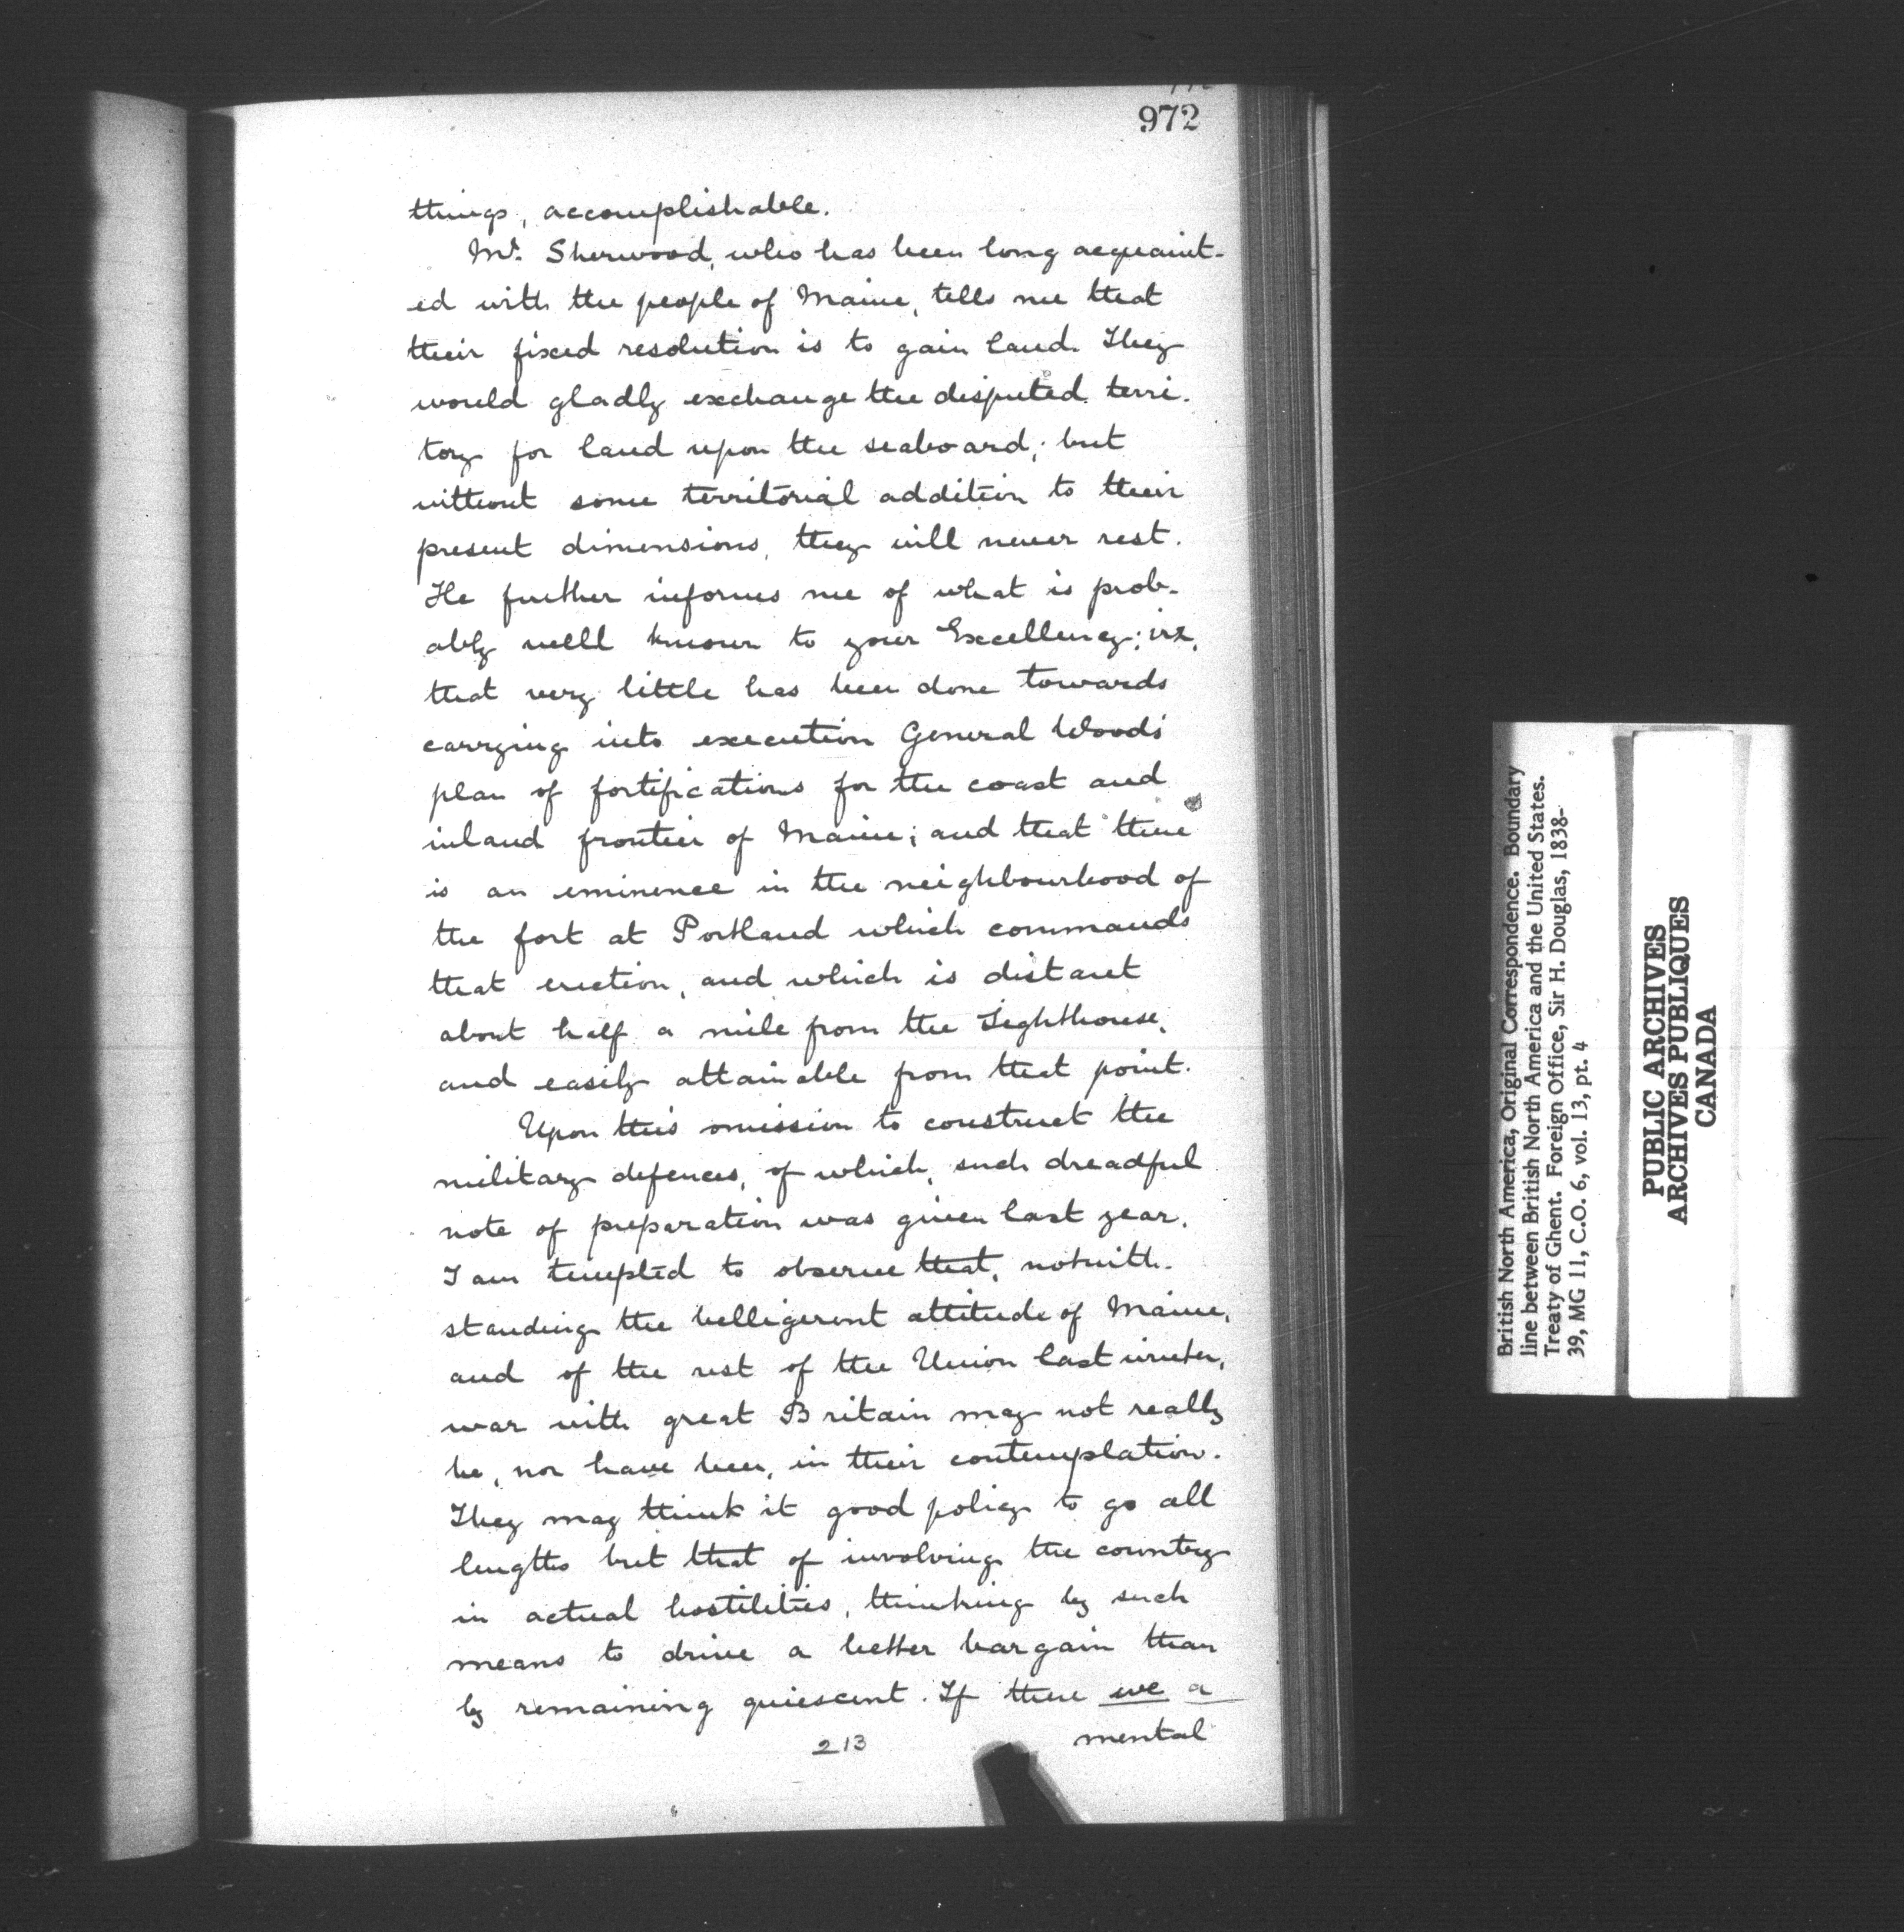 972
things, accomplishable.
Mr. Sherwood, who has been long acquaint-
ed with the people of Maine, tells me that
their fixed resolution is to gain land. They
would gladly exchange the disputed terri-
tory for land upon the seaboard; but
without some territorial addition to their
present dimensions, they will never rest.
He further informs me of what is prob-
ably well known to your Excellency; viz,
that very little has been done towards
carrying into execution General Wood's
plan of fortifications for the coast and
inland frontier of Maine; and that there
is an eminence in the neighbourhood of
the fort at Portland which commands
that erection, and which is distant
about half a mile from the Lighthouse,
and easily attainable from that point.
Upon this omission to construct the
military defences, of which, such dreadful
note of preparation was given last year,
I am tempted to observe that, notwith-
standing the belligerent attitude of Maine,
and of the rest of the Union last winter,
war with great Britain may not really
be, nor have been, in their contemplation.
They may think it good policy to go all
lengths but that of involving the country
in actual hostilities, thinking by such
means to drive a better bargain than
by remaining quiescent. If there be a
213
mental
British North America, Original Correspondence. Boundary
line between British North America and the United States.
Treaty of Ghent. Foreign Office, Sir H. Douglas, 1838-
39, MG 11, C.O. 6, vol. 13, pt. 4
PUBLIC ARCHIVES
ARCHIVES PUBLIQUES
CANADA